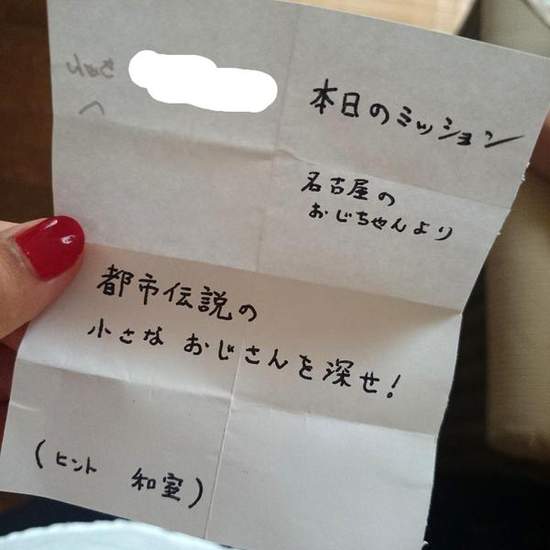 本日のミッション
名古屋の
おじちゃんより
都市伝説の
小さな おじさんを深せ!
(ヒント 和室)